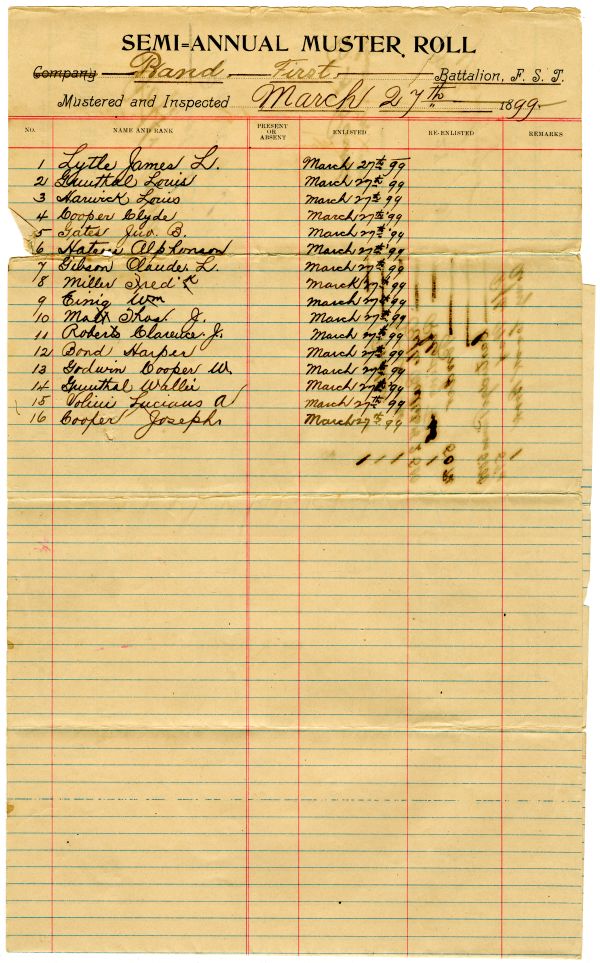 SEMI-ANNUAL MUSTER ROLL
Company Band First Battalion, F. S. T.
Mustered and Inspected March 27th 1899
NO. NAME AND RANK PRESENT OR ABSENT ENLISTED RE-ENLISTED REMARKS
1 Lytle James L. March 27th 99
2 Louis March 27th 99
3 Harwick Louis March 27th 99
4 Cooper Clyde March 27th 99
5 Gates Jno. B. March 27th 99
6 Alphonson March 27th 99
7 Gibson Claude L. March 27th 99
8 Miller Fred March 27th 99
9 Einig Wm March 27th 99
10 Thos. J. March 27th 99
11 Roberts Clarence J. March 27th 99
12 Bond Harper March 27th 99
13 Godwin Cooper W. March 27th 99
14 Wallie March 27th 99
15 Lucians A March 27th 99
16 Cooper Joseph March 27th 99